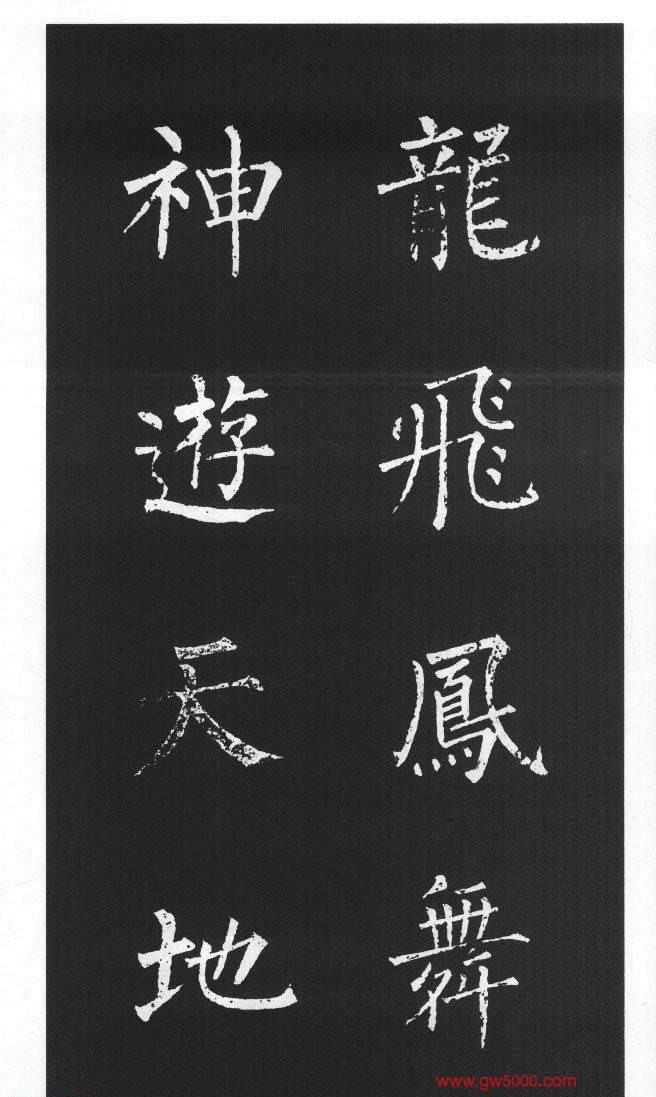 龍飛鳳舞
神遊天地
www.gw5000.com